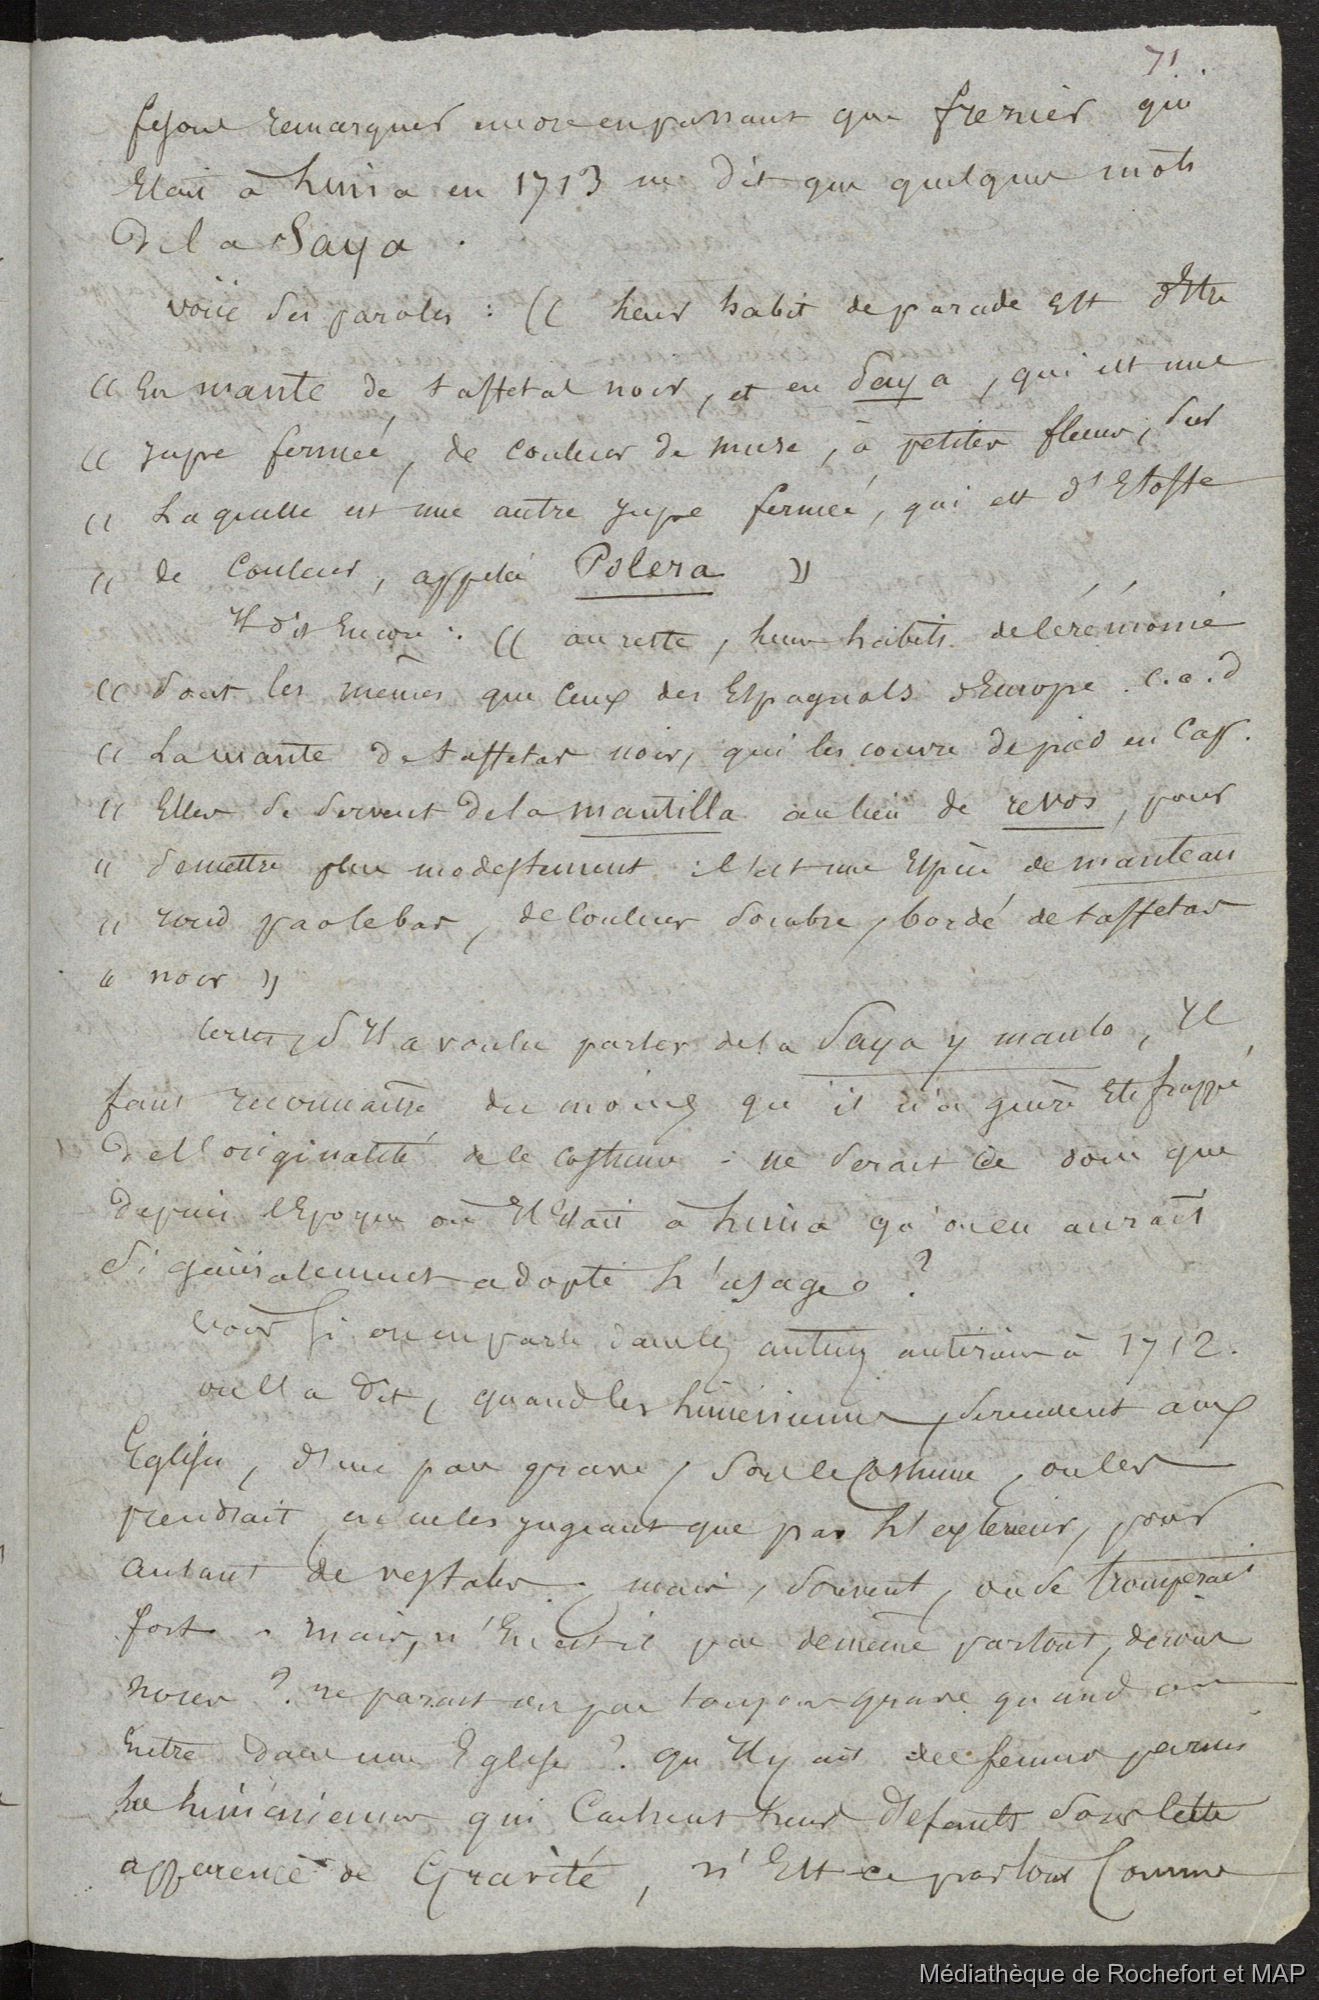 71.
fesons remarquer encore en passant que frezier qui
Etait à Lima en 1713 ne dit que quelques mots
de la Saya.
voici ses paroles : (( Leur habit de parade Est d'Etre
(( En mante de taffetas noir, et en Saya, qui est une
(( jupe fermée, de couleur de musc, à petites fleurs, sur
(( Laquelle est une autre jupe fermée, qui est d'Etoffe
(( de Couleur, appelée Polera ))
Il dit Encore : (( au reste, Leurs habits de Cérémonie
(( sont les mêmes que ceux des Espagnols d'Europe. c.a.d
(( La mante de taffetas noir, qui les couvre de pied en Cap.
(( Elles se servent de la mantilla au lieu de revos, pour
(( se mettre plus modestement : C'est une Espèce de manteau
(( rond par le bas, de Couleur sombre, bordé de taffetas
(( noir ))
Certes, s'Il a voulu parler de la Saya y manto, Il
faut reconnaitre du moins qu'il n'a guère Eté frappé
de l'originalité de ce Costume : ne serait ce donc que
depuis l'Epoque où Il Etait à Lima qu'on en aurait
si généralement adopté L'usage ?
voir si on en parle dans les auteurs antérieurs à 1712.
on l'a dit, quand les Liméniennes, se rendent aux
Eglises, d'un pas grave, sous ce Costume, on les
prendrait, en ne les jugeant que par L'extérieur, pour
autant de vestales ; mais, souvent, on se tromperait
fort. mais, n'En est-il pas de même partout,
? ne parait on pas toujours grave quand on
Entre dans une Eglise ? qu'Il y ait des femmes parmi
Les Liméniennes qui Cachent Leurs Défauts sous Cette
apparence de Gravité, n'Est-ce partout Comme
Médiathèque de Rochefort et MAP